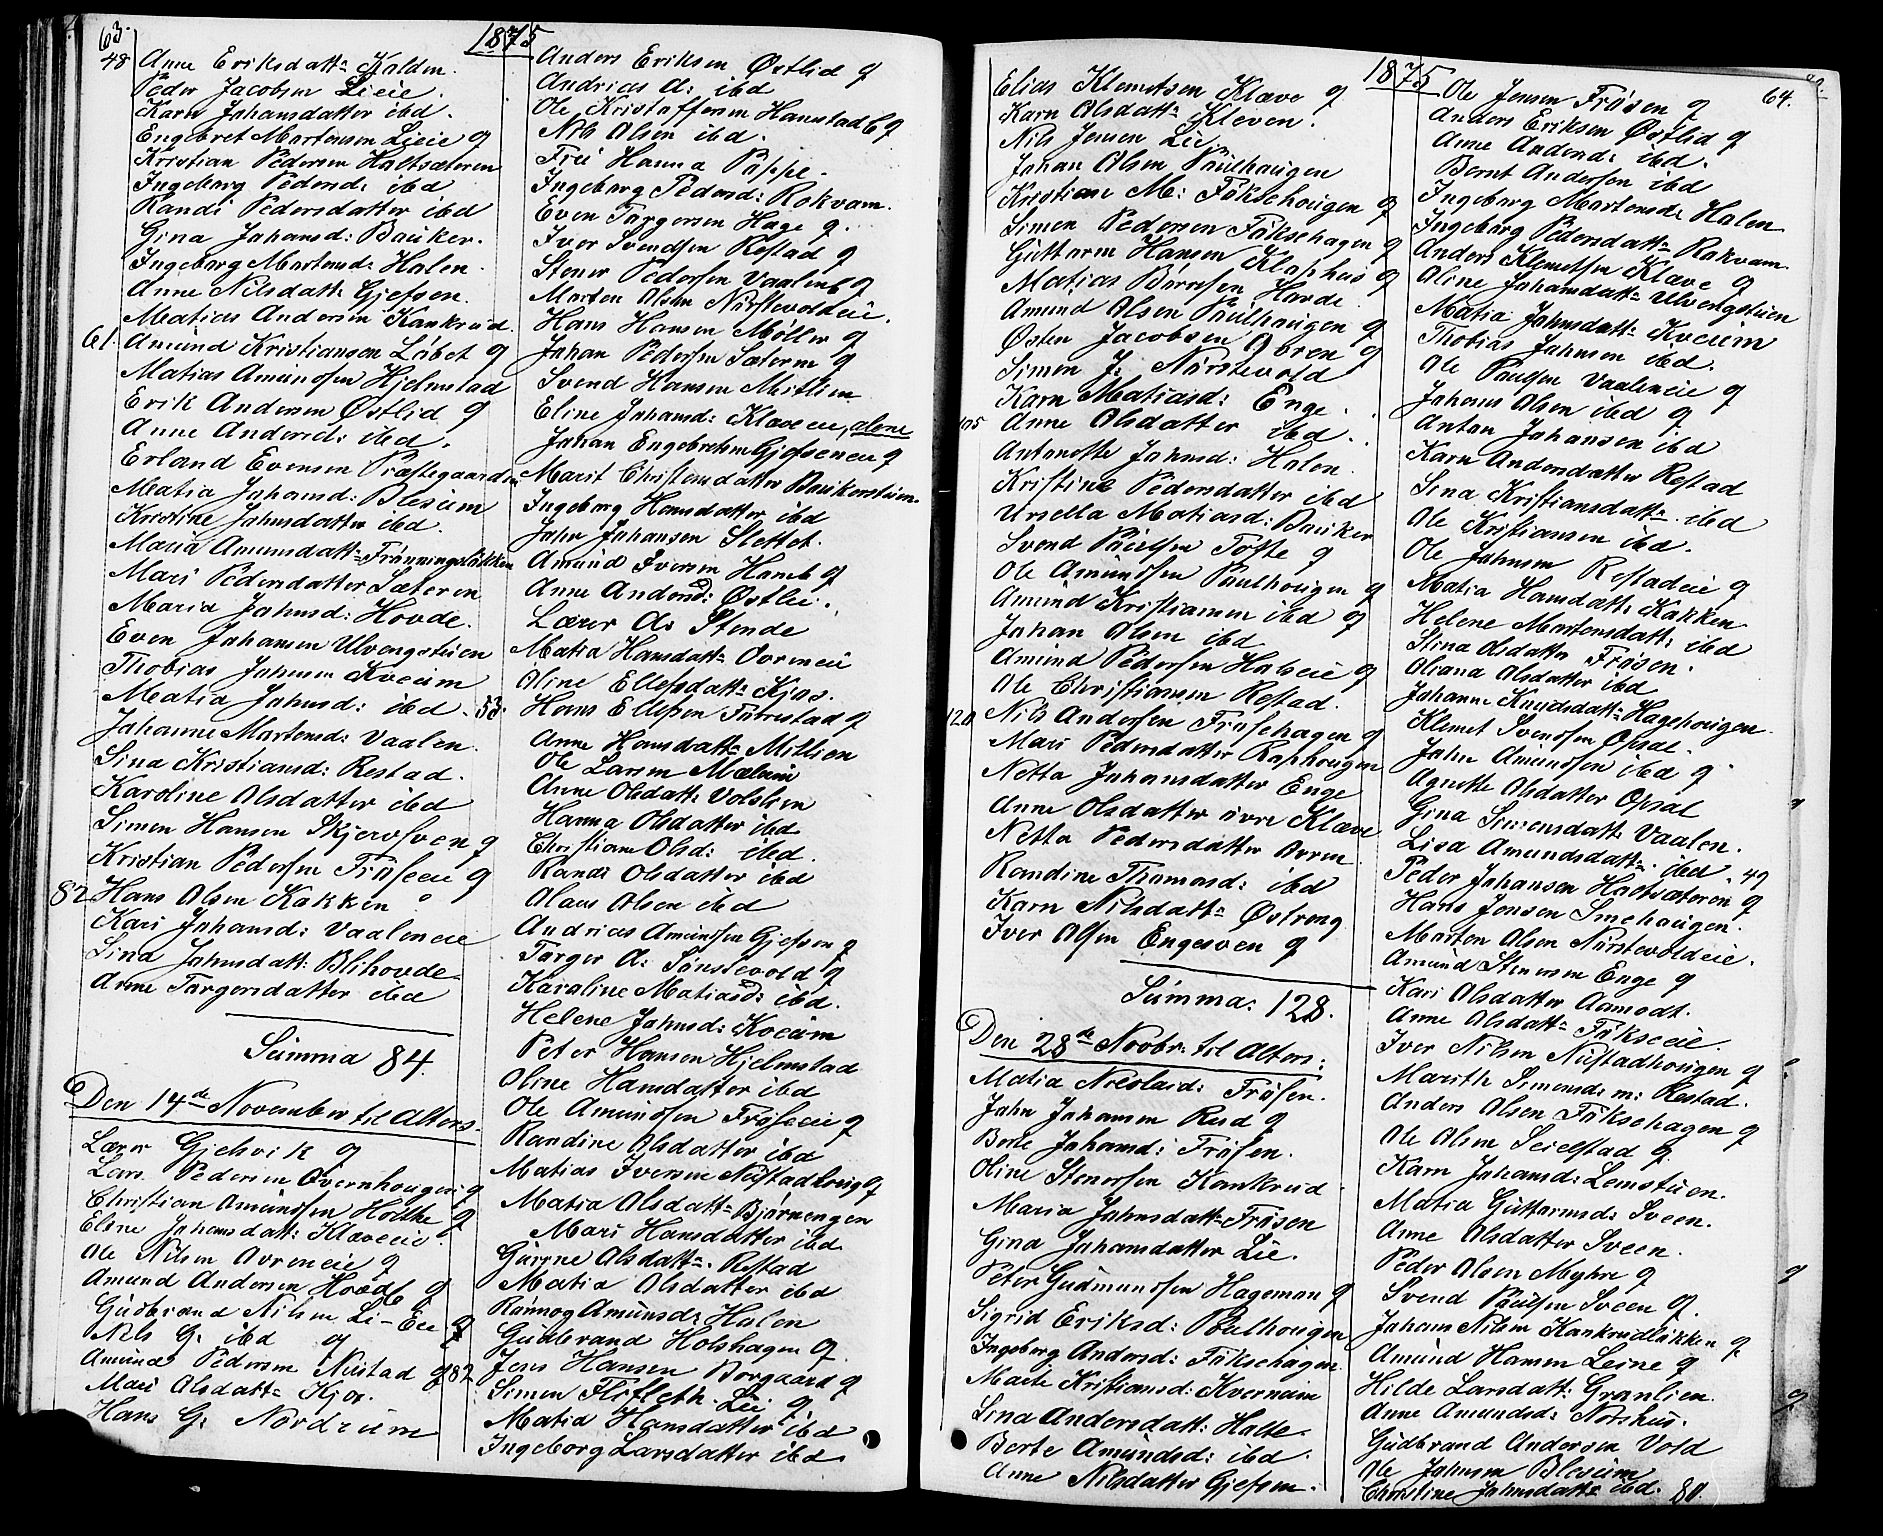 63.
1875
48 Anne Eriksdatt: Kalden.
Peder Jacobsen Lieie.
Karn Johansdatter ibd.
Engebret Martensen Lieie g
Kristian Pedersen Haltsæteren
Ingebarg Pedersd: ibd
Randi Pedersdatter ibd
Gina Johansd: Bauker.
Ingebarg Martensd: Halen.
Anne Nilsdatt: Gjefsen.
Matias Andersen Kankrud.
61. Amund Kristiansen Løbet g
Matias Amundsen Hjelmstad
Erik Andersen Østlid g
Anne Andersd: ibd.
Erland Evensen Præstegaarden
Matia Johansd: Blesum
Kristine Johnsdatter ibd.
Maria Amunsdatt: Frønningsløkken
Mari Pedersdatter Sæteren
Maria Johnsd: Hovde.
Even Johansen Ulvengstuen
Thobias Johnsen Kveum
Matia Johnsd: ibd.
Johanne Martensd: Vaalen.
Sina Kristiansd: Restad.
Karoline Olsdatter ibd
Simen Hansen Skjervsven g
Kristian Pedersen Frøseie g
82 Hans Olsen Kakken
Kari Johansd: Vaaleneie
Sina Johnsdatt: Blihovde
Anne Targersdatter ibd
Summa 84.
Den 14de November til Alters.
Lærer Gjelsvik g
Lars Pedersen Øvernhougen g
Christian Amundsen Holthe g
Eline Johansdatt: Klæveeie.
Ole Nilsen Øvreneie g
Amund Andersen Hovde g
Gudbrand Nilsen Li-Eie g
Nils G: ibd g
Amund Pedersen Nustad g
Mari Olsdatt: Kjos.
Hans G: Nordrum
Anders Eriksen Østlid g
Andrias A: ibd
Ole Kristoffersen Hamstad g
Nils Olsen ibd.
Frü Hanna Pappe.
Ingebarg Pedersd: Rokvam.
Even Targersen Hage g.
Iver Svendsen Restad g
Stener Pedersen Vaalen g
Marten Olsen Nørstevoldeie.
Hans Hansen Møller g
Johan Pedersen Sæteren g
Svend Hansen Mitlien
Eline Johansd: Klæveeie, alene
Johan Engebretsen Gjefseneie g
Marit Christensdatter Baukerstuen.
Ingeborg Hansdatter ibd
John Johansen Slettet.
Amund Iversen Hamb g
Anne Andersd: Østlie.
Lærer O: Stende
Matia Hansdatt: Ovrneie
Oline Ellefsdatt: Kjos.
53. Hans Ellefsen Furrestad g
Anne Hansdatt: Millien
Ole Larsen Mælum
Anne Olsdatt: Volslien
Hanna Olsdatter ibd
Christiane Olsd: ibd.
Randi Olsdatter ibd
Olaus Olsen ibd
Andrias Amundsen Gjefsen g
Targer O: Sønstevold g
Karaline Matiasd: ibd.
Helene Johnsd: Kveum
Peter Hansen Hjelmstad
Oline Hansdatter ibd
Ole Amundsen Frøseie g
Randine Olsdatter ibd
Matias Iversen Nustadhoug g
Matia Olsdatt: Bjørnengen
Mari Hansdatter ibd
Gurine Olsdatt: Restad
Matia Olsdatter ibd
Rønnog Amunsd: Halen
Gudbrand Holshagen g.
82 Jens Hansen Borgaard g
Simen Flifleth Lie g.
Matia Hansdatter ibd
Ingeborg Larsdatter ibd.
1875
64.
Elias Klemetsen Klæve g
Karn Olsdatt: Kleven.
Nils Jensen Lie
Johan Olsen Paulhaugen
Kristiane M: Føksehougen g
Simen Pedersen Føksehagen g
Guttorm Hansen Klaphus g
Matias Børresen Hovde
Amund Olsen Paulhaugen g
Østen Jacobsen Øvren g
Simen J: Nørstevold
Karn Matiasd: Enge.
105 Anne Olsdatter ibd.
Antonette Johnsd: Halen.
Kristine Pedersdatter ibd
Ursella Matiasd: Bauker
Svend Paulsen Tofte g
Ole Amundsen Paulhougen g
Amund Kristiansen ibd g
Johan Olsen ibd
Amund Pedersen Halseie g
Ole Christiansen Restad.
120 Nils Andersen Frøsehagen g
Mari Pedersdatter Raphougen
Netta Johansdatter Enge
Anne Olsdatter øvre Klæve
Netta Pedersdatter Øvren
Randine Thomasd: ibd
Karn Nilsdatt: Østreng
Iver Olsen Engesven g
Summa: 128.
Den 28de Novbr. til Alters:
Matia Nielsd: Frøsen.
John Johansen Rud g
Berte Johansd: Frøsen.
Oline Stenersen Kankrud
Maria Johnsdatt: Frøsen
Gina Johansdatter Lie.
Peter Gudmundsen Hageman g
Sigrid Eriksd: Poulhougen
Ingeborg Andersd: Føksehagen.
Marte Kristiansd: Kvernum
Sina Andersdatt: Halte.
Berte Amundsd: ibd.
Anne Nilsdatter Gjefsen.
Ole Jensen Frøsen g
Anders Eriksen Østlid g
Anne Andersd: ibd.
Bernt Andersen ibd
Ingebarg Martensd: Halen
Ingebarg Pedersdatt: Rakvam.
Anders Klemetsen Klæve g
Oline Johansdatt: Ulvengstuen
Matia Johnsdatt: Kveum
Thobias Johnsen ibd.
Ole Paulsen Vaaleneie g
Johanes Olsen ibd g
Anton Johansen ibd
Karn Andersdatter Restad
Sina Kristiansdatt: ibd
Ole Kristiansen ibd.
Ole Johnsen Restadeie g
Matia Hansdatt: Kakken
Helene Martensdatt: ibd
Stina Olsdatter Frøsen.
Oleana Olsdatter ibd
Johanne Knudsdatt: Hagehougen.
Klemet Svendsen Opsal.
John Amundsen ibd g
Agnethe Olsdatter Opsal
Gina Simensdatt: Vaalen.
Lisa Amundsdatt: ibd. 49
Peder Johansen Haltsæteren g
Hans Jensen Smehaugen.
Marten Olsen Nørstevoldeie.
Amund Stenersen Enge g
Kari Olsdatter Aamodt.
Anne Olsdatt: Føkseeie.
Iver Nilsen Nustadhougen g
Marith Simensd: m: Restad.
Anders Olsen Føksehagen g
Ole Olsen Seielstad g
Karn Johansd: Lemstuen.
Matia Guttormsd: Sveen.
Anne Olsdatter Sveen.
Peder Olsen Myhre g
Svend Paulsen Sveen g.
Johans Nilsen Kankrudløkken g
Amund Hansen Leine g
Hilde Larsdatt: Granlien.
Anne Amundsd: Norshus.
Gudbrand Andersen Vold
Ole Johnsen Blesum
Christine Johnsdatt: ibd. 80.